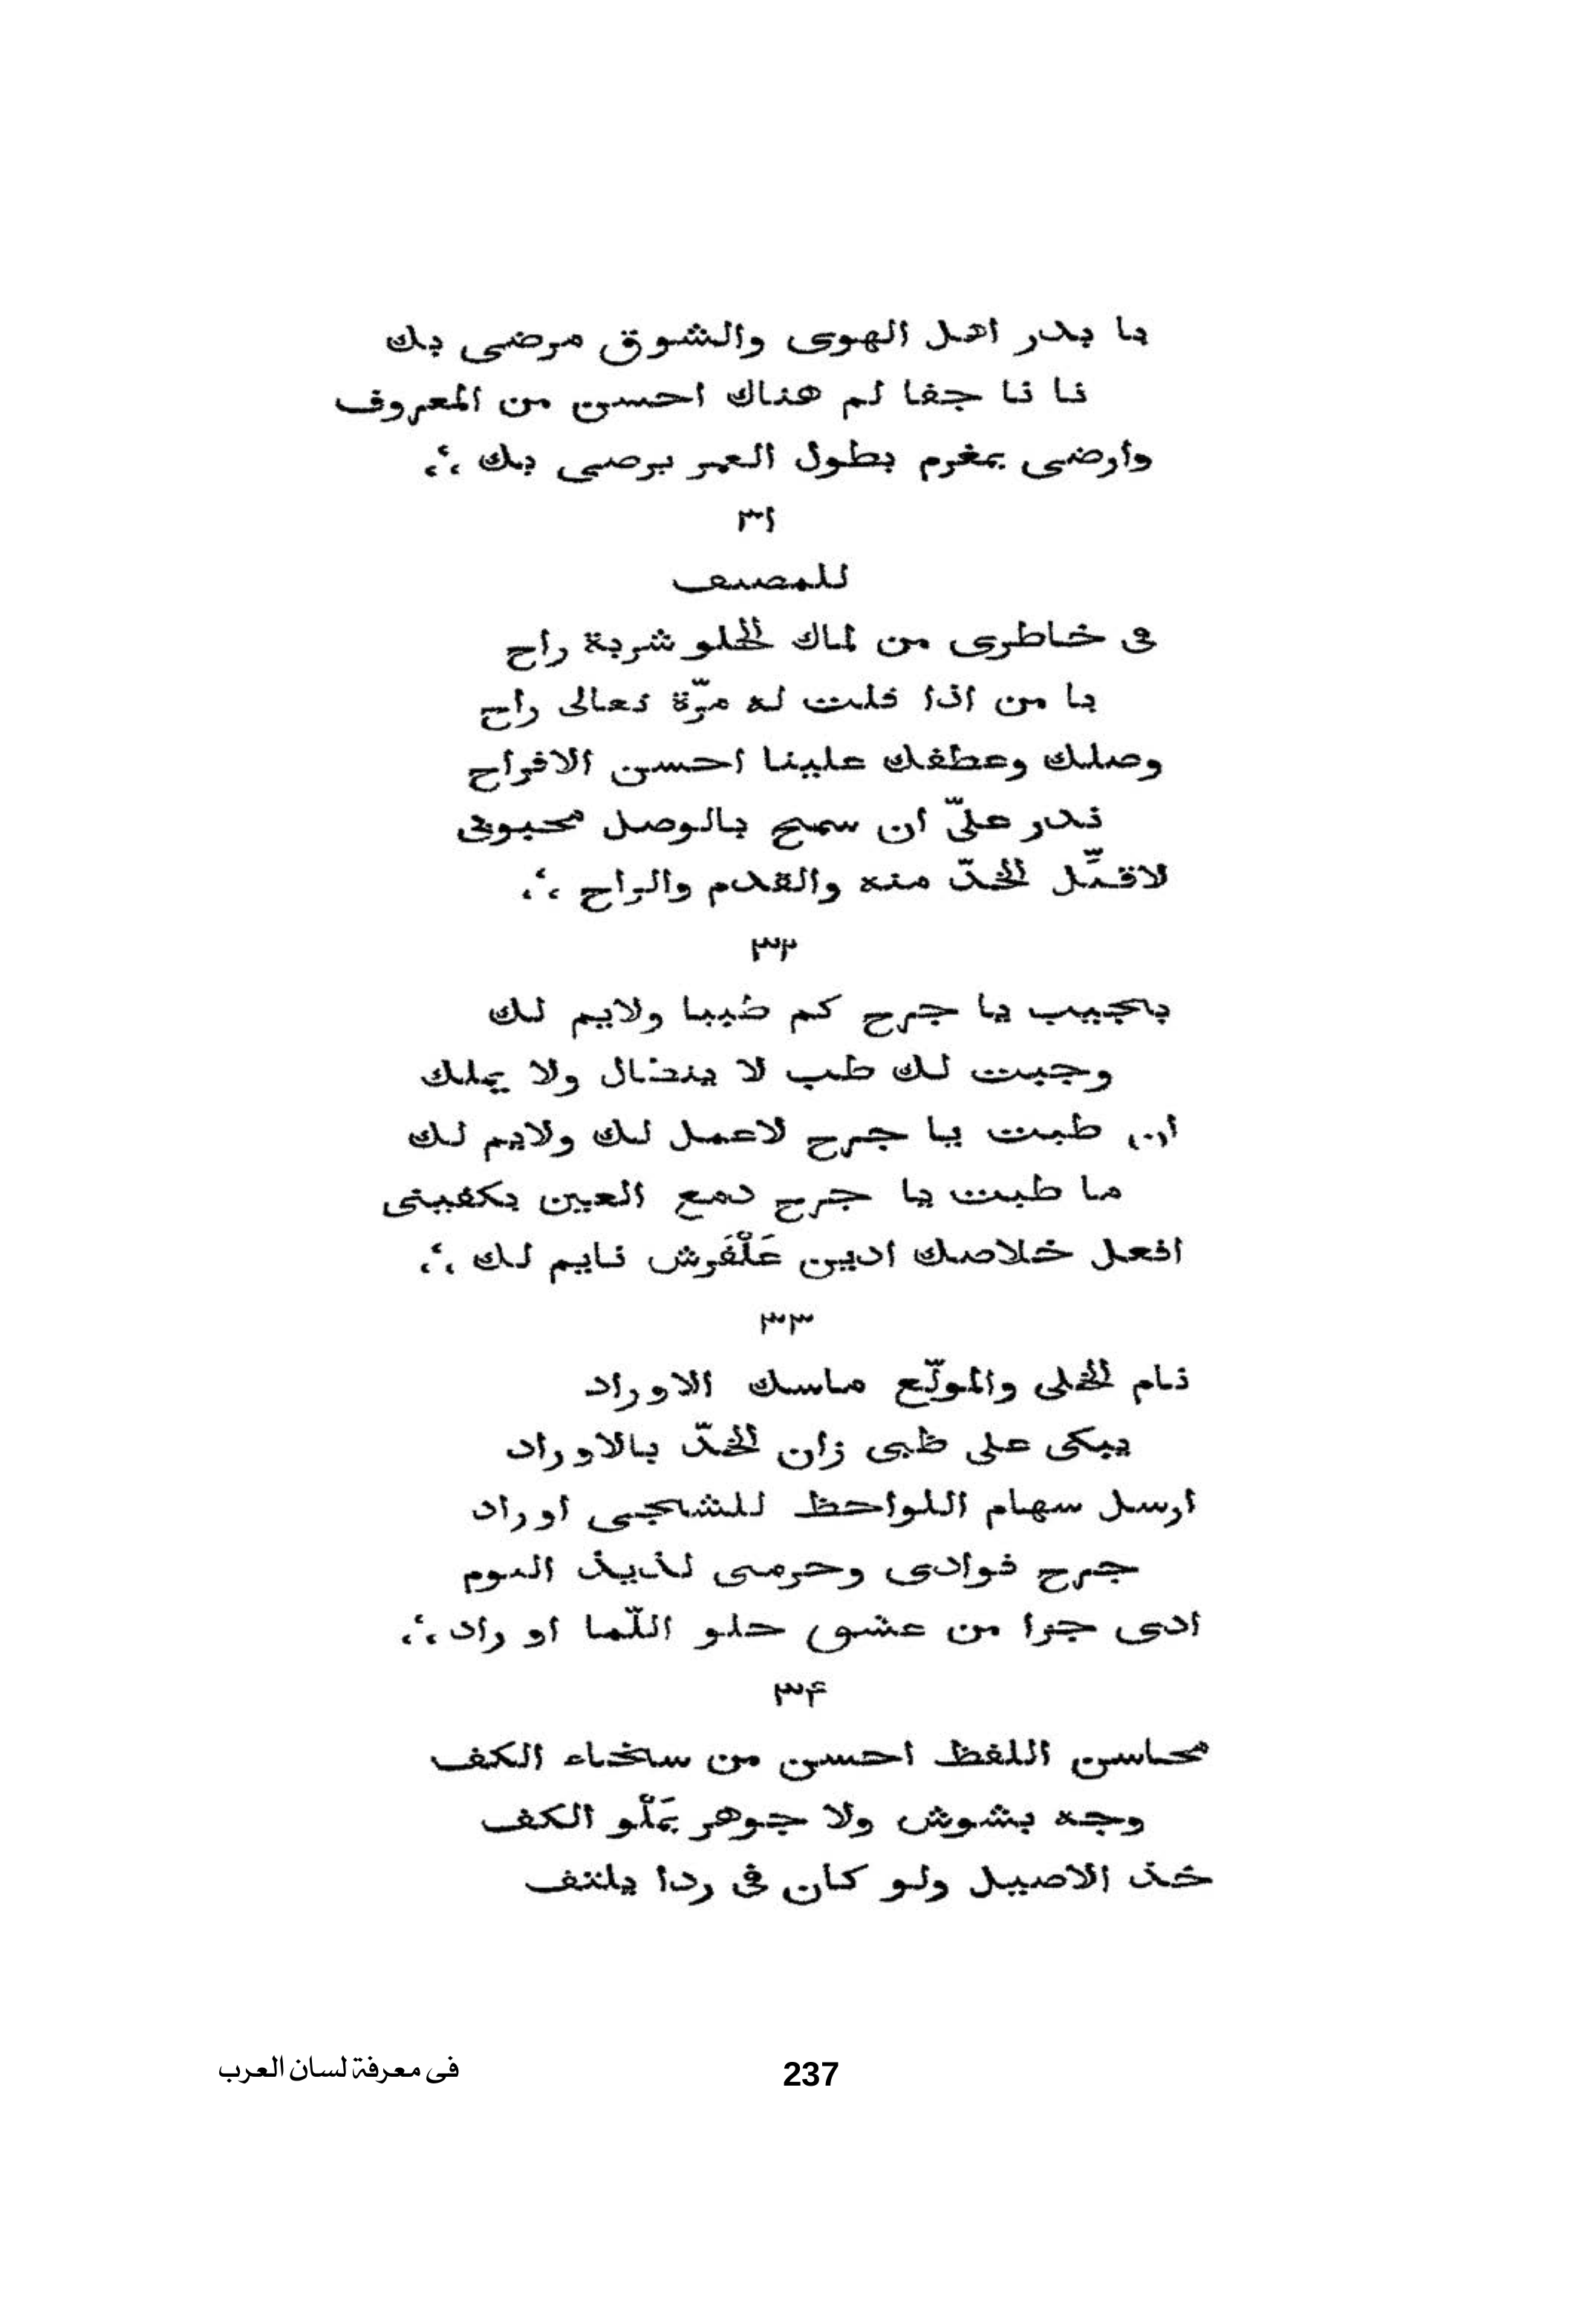 يا بدر اهل الهوى والشوق مرضى بك
نا نا جفا لم هناك احسن من المعروف
وارضى بمغرم بطول العمر يرضى بك
٣١
للمصنف
فى خاطرى من لماك الحلو شربة راح
يا من اذا قلت له مرّة تعالى راح
وصلك وعطفك علينا احسن الافراح
ندر علىّ ان سمح بالوصل محبوبى
لاقبّل الخدّ منه والقدم والراح
٣٢
بحبيب يا جرح كم طببا ولايم لك
وجبت لك طب لا ينضال ولا يملك
ان طبت يا جرح لاعمل لك ولايم لك
ما طبت يا جرح دمع العين يكفينى
افعل خلاصك ادين عَلْفَرش نايم لك
٣٣
نام الخلى والمولّع ماسك الاوراد
يبكى على ظبى زان الخدّ بالاوراد
ارسل سهام اللواحظ للشجى اوراد
جرح فوادى وحرمنى لذيذ النوم
ادى جزا من عشق حلو اللّما او راد
٣۴
محاسن اللفظ احسن من سخاء الكف
وجه بشوش ولا جوهر يَمْلُو الكف
خذ الاصيل ولو كان فى ردا يلتف
فى معرفة لسان العرب
237